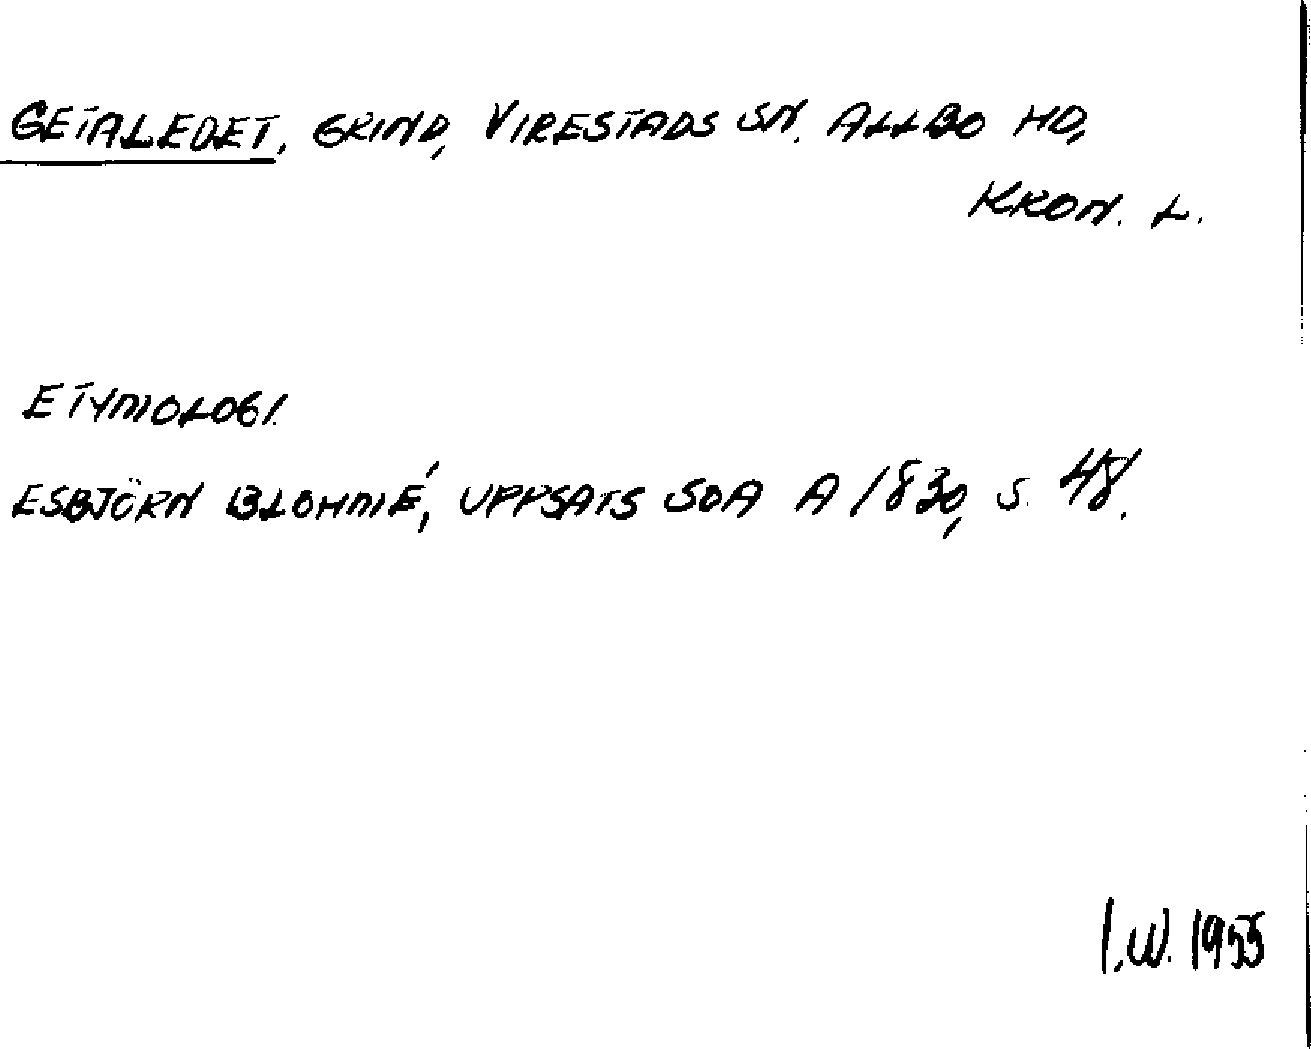 GETALEDET, GRIND, VIRESTADS SN. ALLBO HD,
KRON. L.
ETYMOLOGI.
ESBJÖRN BLOHMÉ, UPPSATS SOA A 1830, S. 48.
I.W. 1955